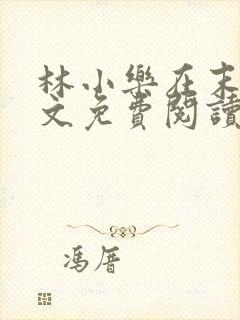 林小樂在末
文免費閱讀
馮厝